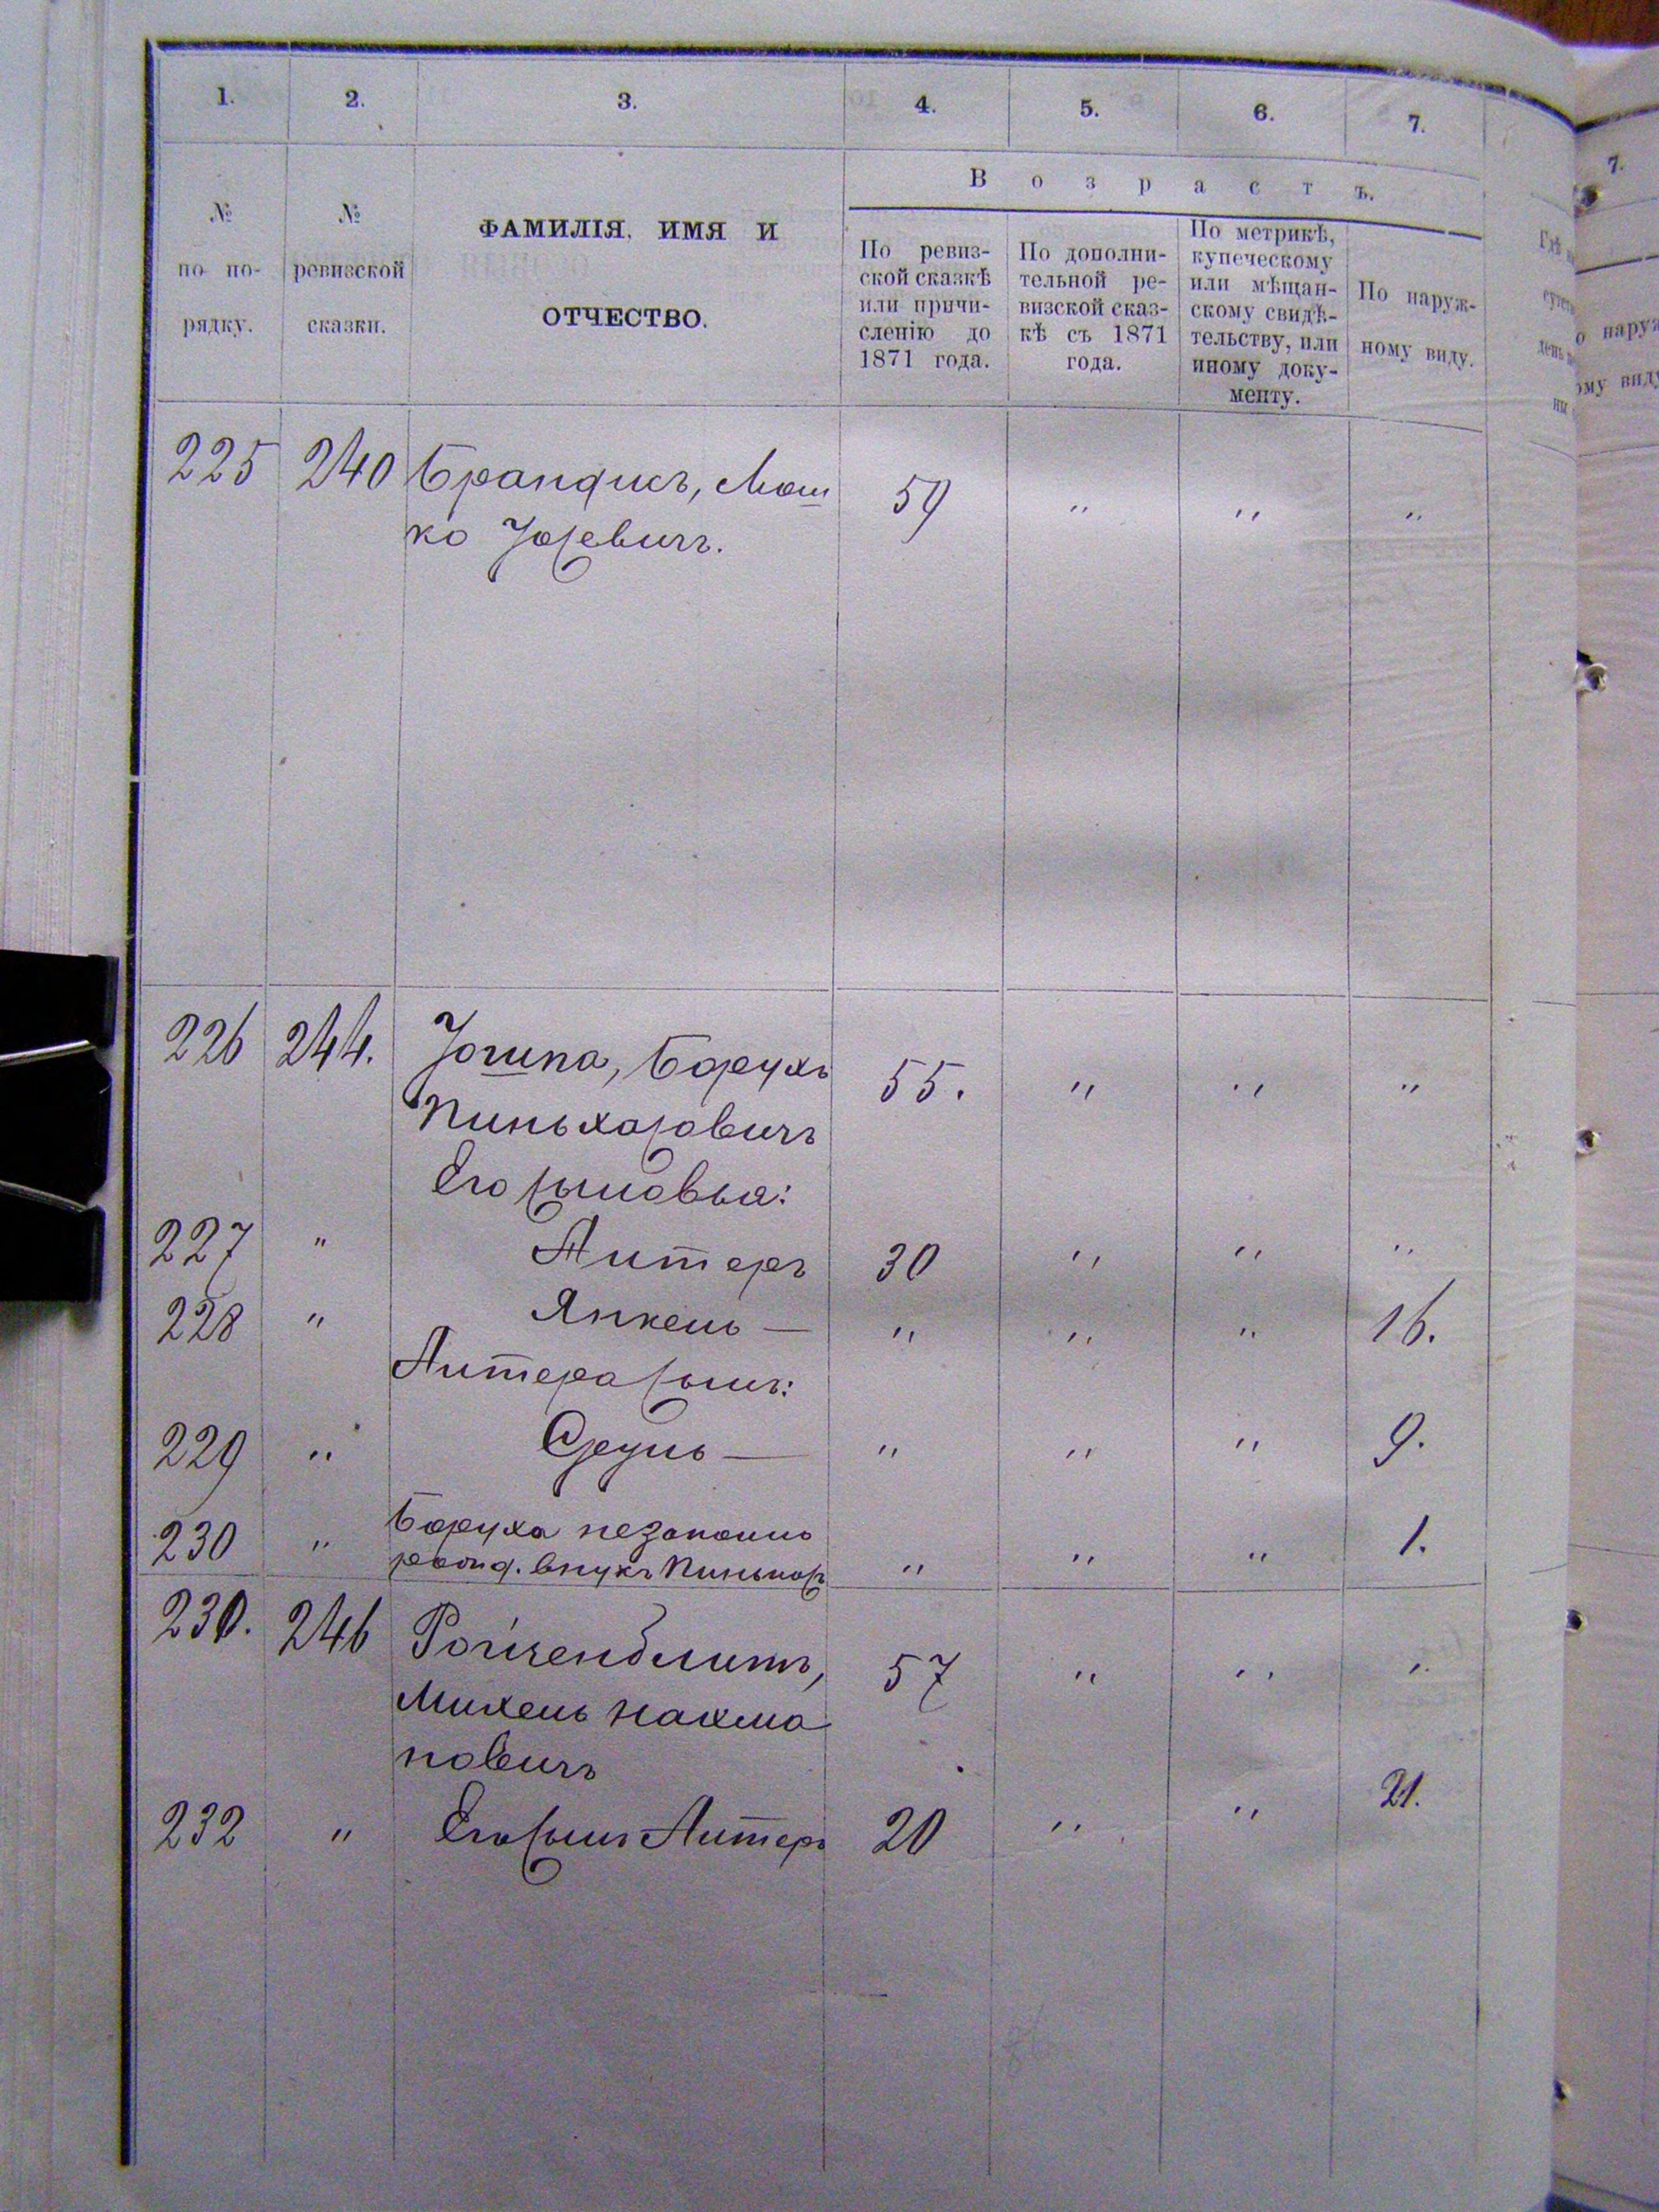 1. 2. 3. 4. 5. 6. 7.
В о з р а с т ъ.
№ по по-
рядку.
№
ревизской
сказки.
ФАМИЛІЯ, ИМЯ И
ОТЧЕСТВО.
По ревиз-
ской сказкѣ
или причи-
сленію до
1871 года.
По дополни-
тельной ре-
визской сказ-
кѣ съ 1871
года.
По метрикѣ,
купеческому
или мѣщан-
скому свидѣ-
тельству, или
иному доку-
менту.
По наруж-
ному виду.
225 240 Брандисъ, Мош 59 " " "
ко Іосевичъ.
226 244. Борухъ 55. " " "
Пиньхасовичъ
Его сыновья:
227 " Литеръ 30 " " "
228 " Янкель — " " " 16.
Литера сынъ:
229 " Сруль — " " " 9.
230 " Боруха незаконно
рожд. внукъ " " " 1.
230. 246 Ройченблитъ, 57 " " "
Михель Нахма
новичъ
232 " Его сынъ Литеръ 20 " " 21.
7.